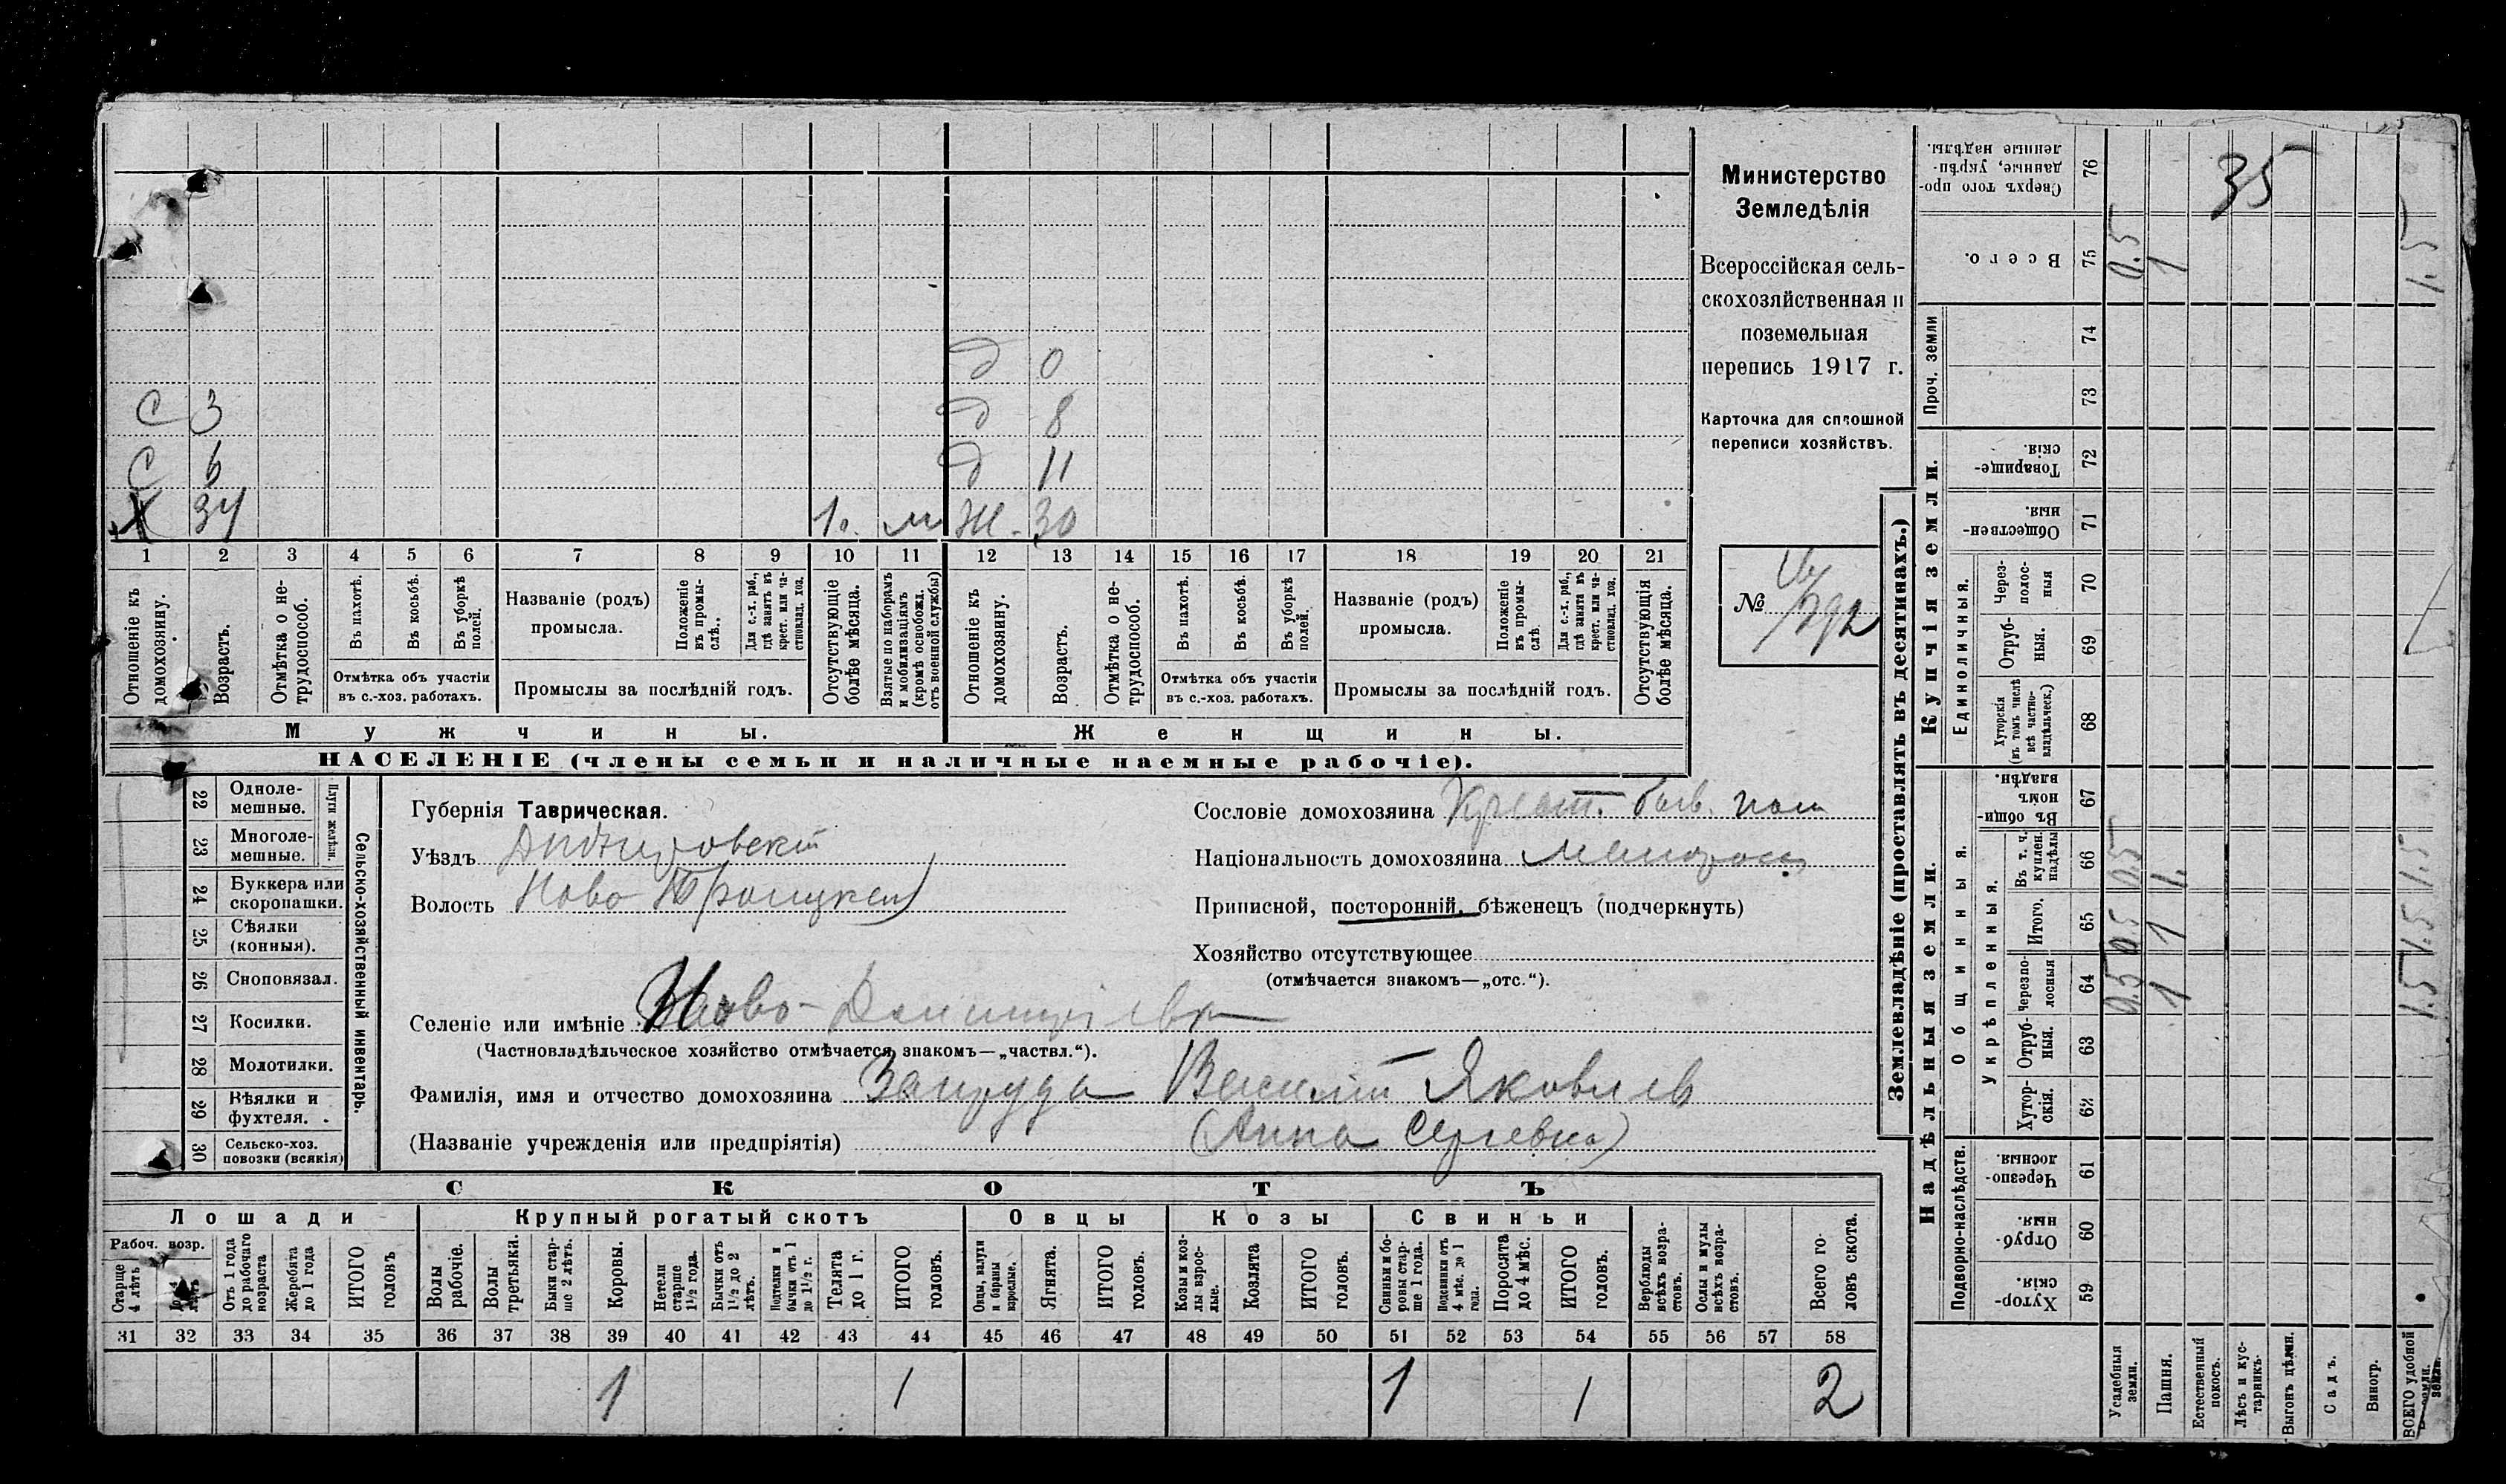 д 0
С 3 д 8
С 6 д 11
Х 34 1. м Ж. 30
1 2 3 4 5 6 7 8 9 10 11 12 13 14 15 16 17 18 19 20 21
Отношеніе къ домохозяину.
Возрастъ.
Отмѣтка о не-
трудоспособ.
Въ пахотѣ.
Въ косьбѣ.
Въ уборкѣ
полей.
Отмѣтка объ участіи
въ с.-хоз. работахъ.
Названіе (родъ)
промысла.
Положеніе
въ промы-
слѣ..
Для с.-х. раб.,
гдѣ занятъ въ
крест. или ча-
стновлад. хоз.
Промыслы за послѣдній годъ.
Отсутствующіе
болѣе мѣсяца.
Взятые по наборамъ
и мобилизаціямъ
(кромѣ освобожд.
отъ военной службы)
Отношеніе къ
домохозяину.
Возрастъ.
Отмѣтка о не-
трудоспособ.
Въ пахотѣ.
Въ косьбѣ.
Въ уборкѣ
полей.
Отмѣтка объ участіи
въ с.-хоз. работахъ.
Названіе (родъ)
промысла.
Положеніе
въ промы-
слѣ.
Для с.-х. раб.,
гдѣ занята въ
крест. или ча-
стновлад. хоз.
Промыслы за послѣдній годъ.
Отсутствующія
болѣе мѣсяца.
Мужчины.
Женщины.
НАСЕЛЕНІЕ (члены семьи и наличные наемные рабочіе).
Министерство
Земледѣлія
Всероссійская сель-
скохозяйственная и
поземельная
перепись 1917 г.
Карточка для сплошной
переписи хозяйствъ.
№
22 Одноле-
мешные.
23 Многоле-
мешные.
Плуги желѣзн.
24 Буккера или
скоропашки.
25 Сѣялки
(конныя).
26 Сноповязал.
27 Косилки.
28 Молотилки.
29 Вѣялки и
фухтеля.
30 Сельско-хоз.
повозки (всякія)
Сельско-хозяйственный инвентарь.
Губернія Таврическая.
Уѣздъ
Волость Ново Троицкая
Селеніе или имѣніе Ново-
(Частновладѣльческое хозяйство отмѣчается знакомъ—„частвл.“).
Фамилія, имя и отчество домохозяина Запруда Василій Яковлев
(Названіе учрежденія или предпріятія) (Анна Сергевна)
Сословіе домохозяина Крест. бывш. пом
Національность домохозяина малоросс
Приписной, посторонній, бѣженецъ (подчеркнуть)
Хозяйство отсутствующее
(отмѣчается знакомъ—„отс.“).
СКОТЪ
Лошади
Крупный рогатый скотъ
Овцы
Козы
Свиньи
Рабоч. возр.
Старше
4 лѣтъ
Отъ 1 года
до рабочаго
возраста
Жеребята
до 1 года
ИТОГО
головъ
Волы
рабочіе.
Волы
третьяки.
Быки стар-
ше 2 лѣтъ.
Коровы.
Нетели
старше
1½ года.
Бычки отъ
1½ до 2
лѣтъ.
Подтелки и
бычки отъ 1
до 1½ г.
Телята
до 1 г.
ИТОГО
головъ.
Овцы, валухи
и бараны
взрослые.
Ягнята.
ИТОГО
головъ.
Козы и коз-
лы взрос-
лые.
Козлята
ИТОГО
головъ.
Свиньи и бо-
ровы стар-
ше 1 года.
Подсвинки отъ
4 мѣс. до 1
года.
Поросята
до 4 мѣс.
ИТОГО
головъ.
Верблюды
всѣхъ возра-
стовъ.
Ослы и мулы
всѣхъ возра-
стовъ.
Всего го-
ловъ скота.
31 32 33 34 35 36 37 38 39 40 41 42 43 44 45 46 47 48 49 50 51 52 53 54 55 56 57 58
1 1 1 1 2
Землевладѣніе (проставлять въ десятинахъ.)
Надѣльныя земли.
Купчія земли.
Проч. земли
Подворно-наслѣдств.
Общинныя.
Укрѣпленныя.
Единоличныя.
Сверхъ того про-
данные, укрѣп-
ленные надѣлы.
76
35
Всего.
75 0.5 1 1.5
74
73
Товарище-
скія.
72
Обществен-
ныя.
71
Через-
полос-
ныя
70
Отруб-
ныя.
69
Хуторскія
(въ томъ числѣ
всѣ частно-
владѣльческ.)
68
Въ общи-
номъ
владѣн.
67
Въ т. ч.
куплен.
надѣлы
66 0.5 1. 1.5
Итого.
65 0.5 1 1.5
Черезпо-
лосныя
64 0.5 1 1.5
Отруб-
ныя.
63
Хутор-
скія.
62
Черезпо-
лосныя.
61
Отруб-
ныя.
60
Хутор-
скія.
59
Усадебныя
земли.
Пашня.
Естественный
покосъ.
Лѣсъ и кус-
тарникъ.
Выгонъ цѣлин.
Садъ.
Виногр.
ВСЕГО удобной
земли.